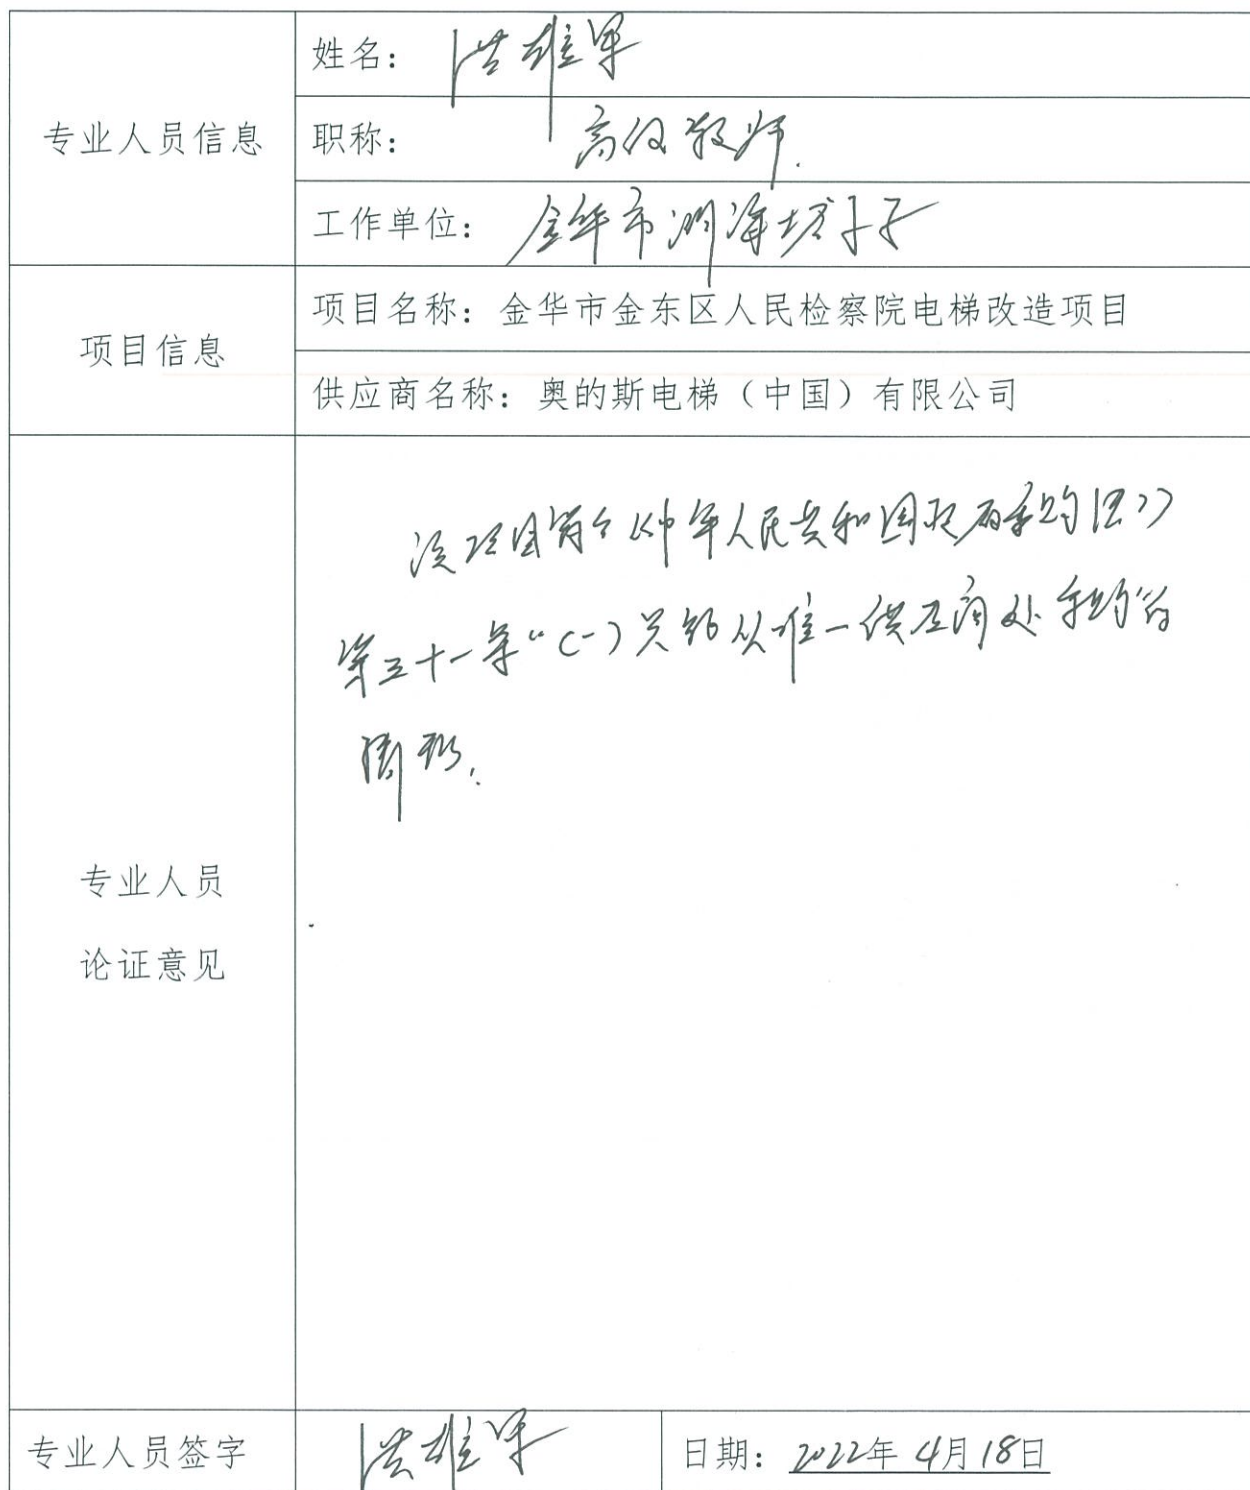 专业人员信息
姓名：洪雄军
职称：高级教师.
工作单位：金华市
项目信息
项目名称：金华市金东区人民检察院电梯改造项目
供应商名称：奥的斯电梯（中国）有限公司
专业人员
论证意见
该项目符合《中华人民共和国政府采购法》
第三十一条“(一)只能从唯一供应商处采购的
情形.
专业人员签字
洪雄军
日期：2022年4月18日